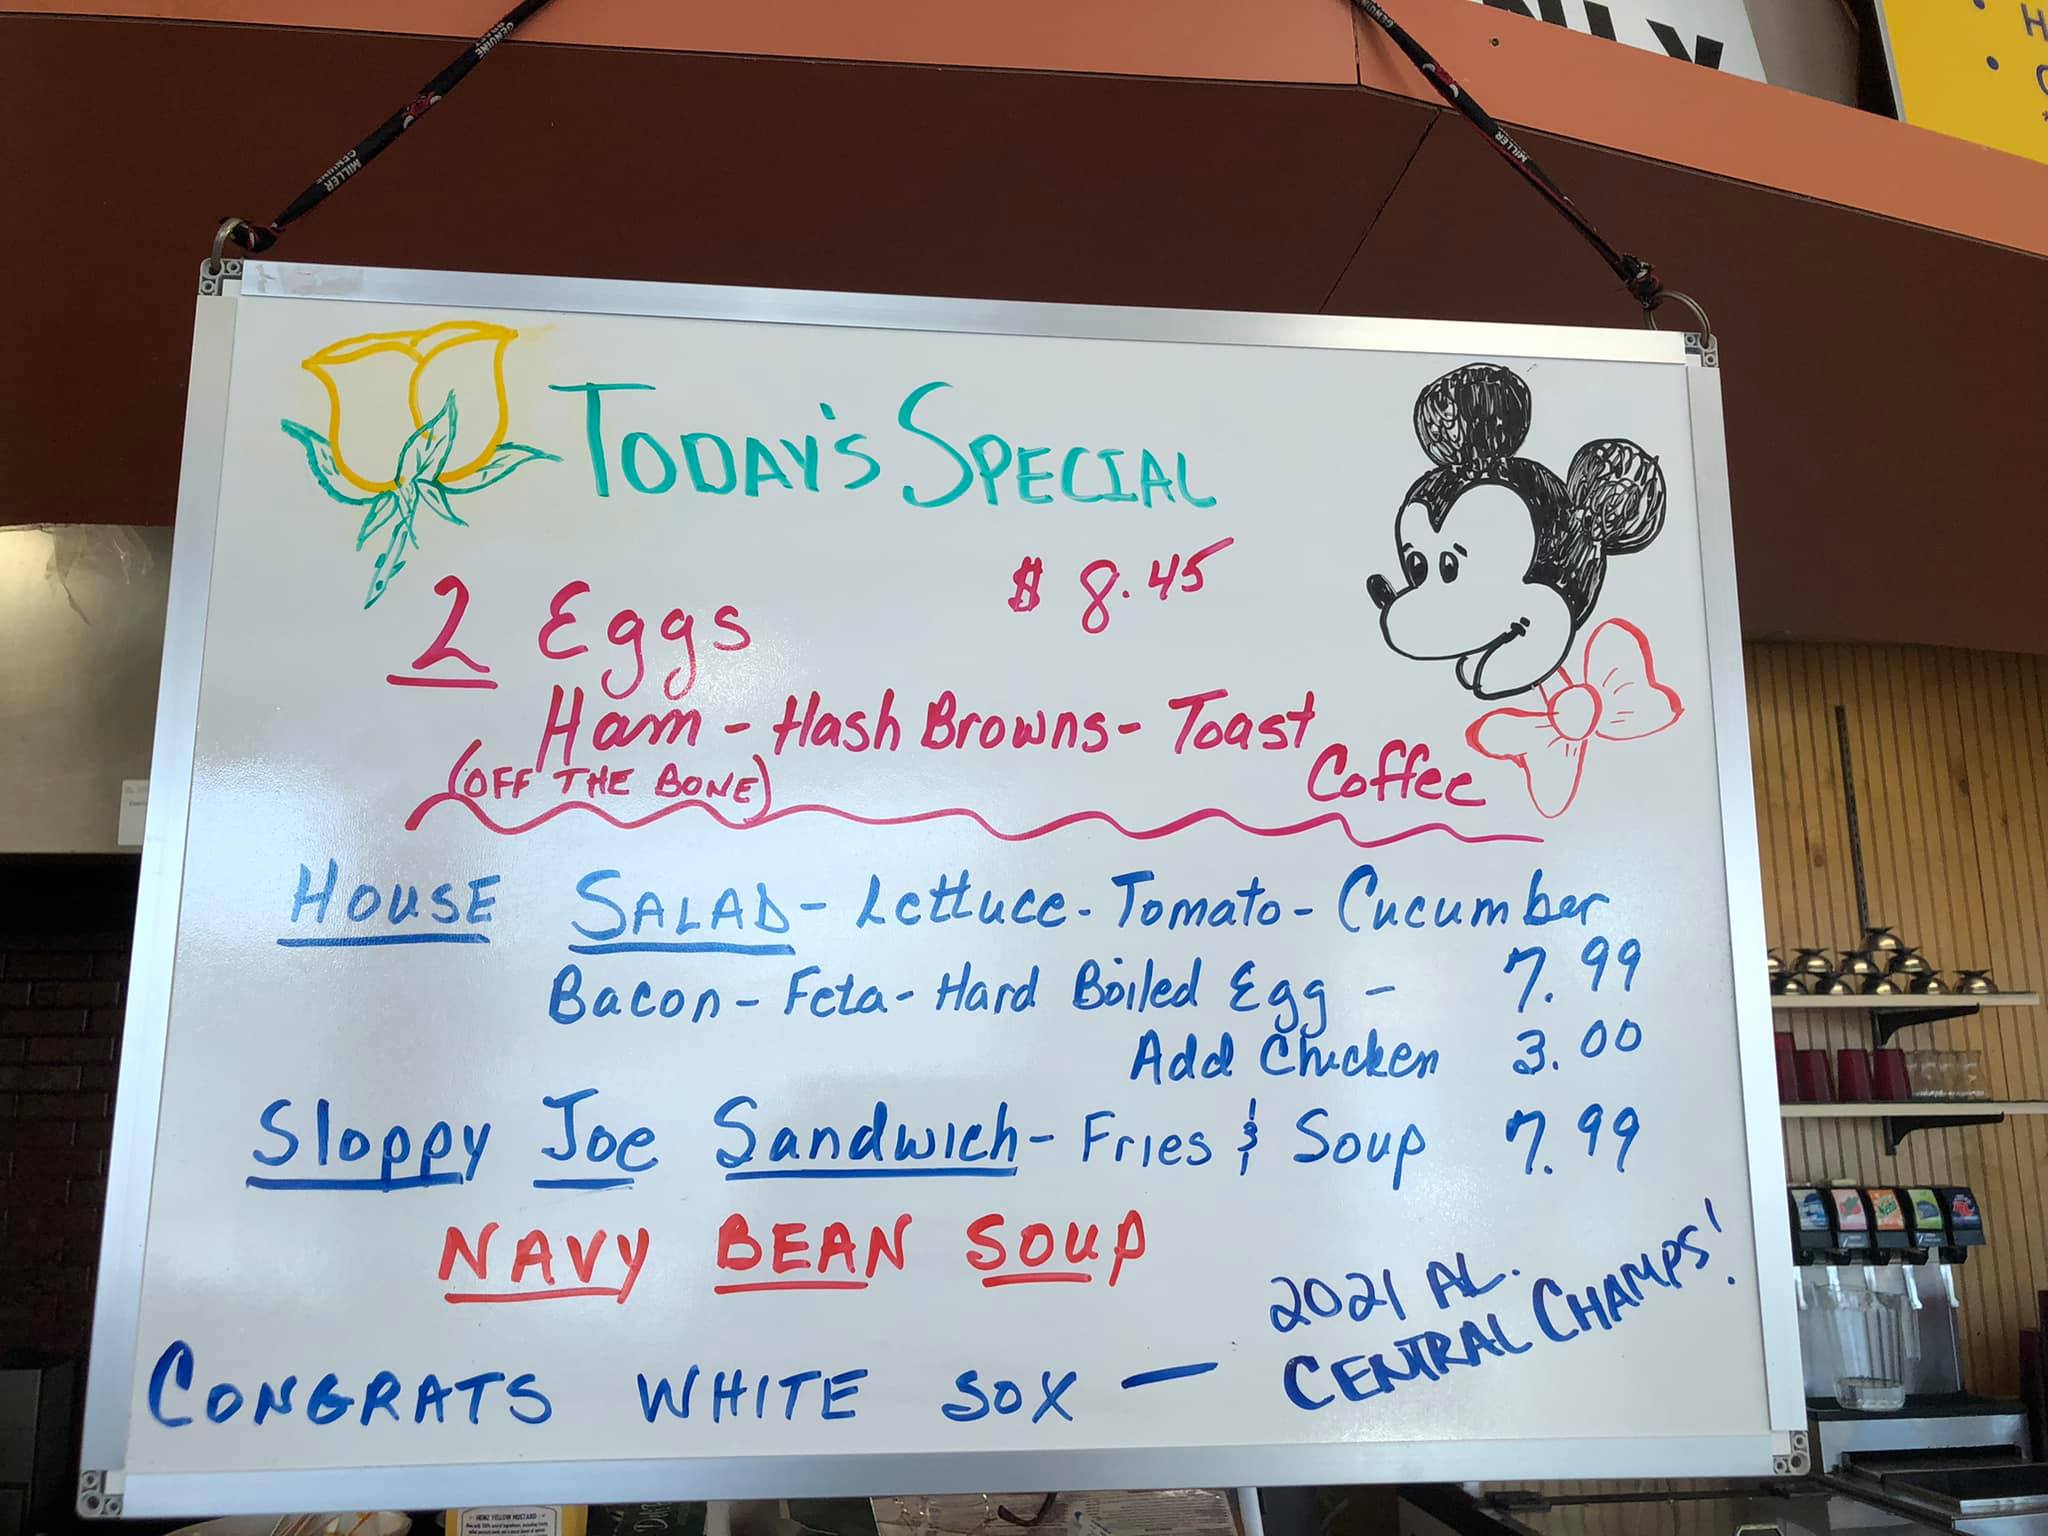 NLY
H
MILLER GENUINE
GENUINE
MILLER
TODAY'S SPECIAL
2 Eggs $8.45
Ham - Hash Browns - Toast
(OFF THE BONE) Coffee
HOUSE SALAD - Lettuce - Tomato - Cucumber
Bacon - Feta - Hard Boiled Egg - 7.99
Add Chicken 3.00
Sloppy Joe Sandwich - Fries & Soup 7.99
NAVY BEAN SOUP
CONGRATS WHITE SOX — 2021 AL.
CENTRAL CHAMPS!
HEINZ YELLOW MUSTARD